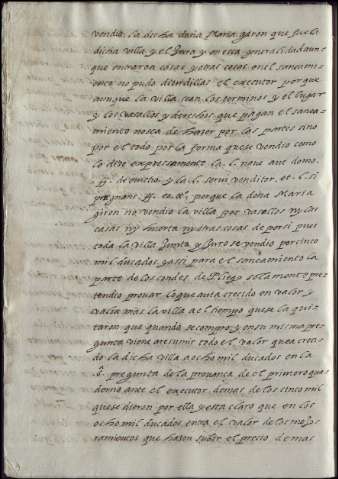 vendio. la dicha doña Maria garon que fue la
dicha villa y el Juro y en esta generalidad aun
que entraron casas y otras cosas. en el saneami
ento no pudo dividillas el executor porque
aunque la villa sean los terminos y el lugar
y los vasallos y derechos, que pagan el sanea
miento no se a de hazer por las partes sino
por el todo, por la forma que se vendio como
lo dize expresamente la l.
de evictio. y la l. servi venditor. et l. si
porque la doña Maria
giron no vendio la villa por vasallos ny las
casas ny huerta ny otras cosas de por si pues
toda la villa Junta y Juro se vendio por cinco
mil ducados y assi para el saneamiento la
parte de los condes de Pliego solamente pre
tendio provar lo que avia crecido en valor y
valia mas la villa al tiempo que se la qui
taron que quando se compro, y en su misma pre
gunta viene a resumir todo el valor que a creci
do la dicha villa a ocho mil ducados en la
3. pregunta de la provança de el primero que
dieno ante el executor, demas de los cinco mil
que se dieron por ella y esta claro que en los
ocho mil ducados entra el valor de los mejo
ramientos que hazen subir el precio de mas